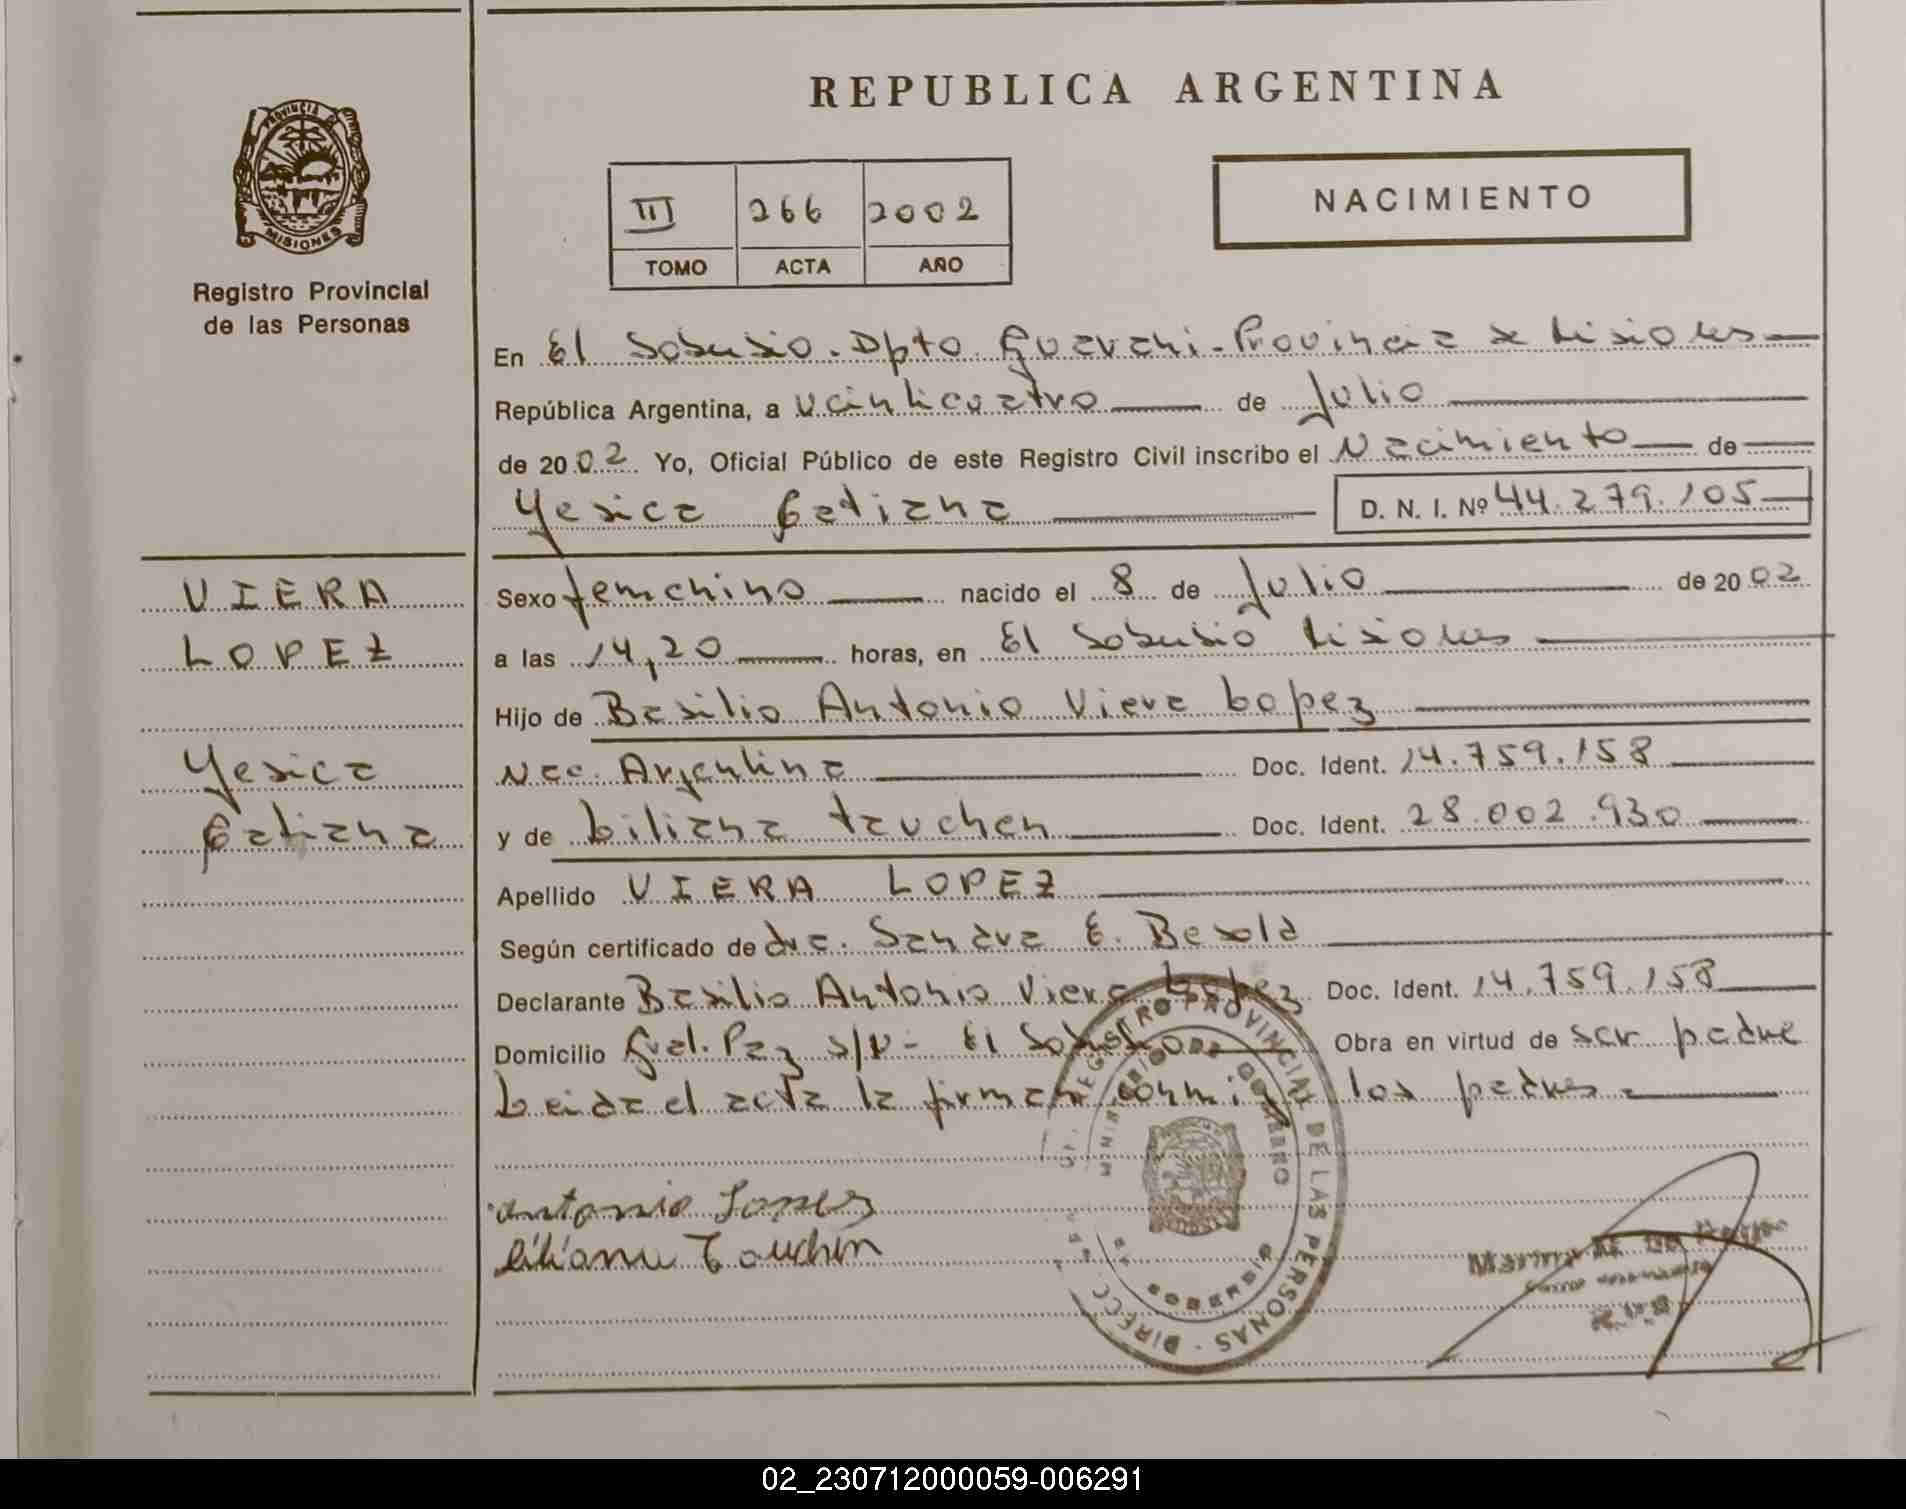 REPUBLICA ARGENTINA
PROVINCIA DE
MISIONES
Registro Provincial
de las Personas
III 266 2002
TOMO ACTA AÑO
NACIMIENTO
En El Soberbio. Dpto Guarani. Provincia de Misiones
República Argentina, a veinticuatro de Julio
de 2002 Yo, Oficial Público de este Registro Civil inscribo el Nacimiento de
Yesica Tatiana D. N. I. Nº 44.279.105
VIERA
LOPEZ
Yesica
Tatiana
Sexo femenino nacido el 8 de Julio de 2002
a las 14,20 horas, en El Soberbio Misiones
Hijo de Basilio Antonio Viera Lopez
Nac. Argentina Doc. Ident. 14.759.158
y de Liliana Tauchen Doc. Ident. 28.002.930
Apellido VIERA LOPEZ
Según certificado de dra. Sandra E. Besold
Declarante Basilio Antonio Viera Lopez Doc. Ident. 14.759.158
Domicilio Gral. Paz s/N - El Soberbio Obra en virtud de ser padre
Leida el acta la firman conmigo los padres
Antonio Lopez
liliana Tauchen
REGISTRO PROVINCIAL DE LAS PERSONAS - DIRECC
MINISTERIO DE GOBIERNO
02_230712000059-006291